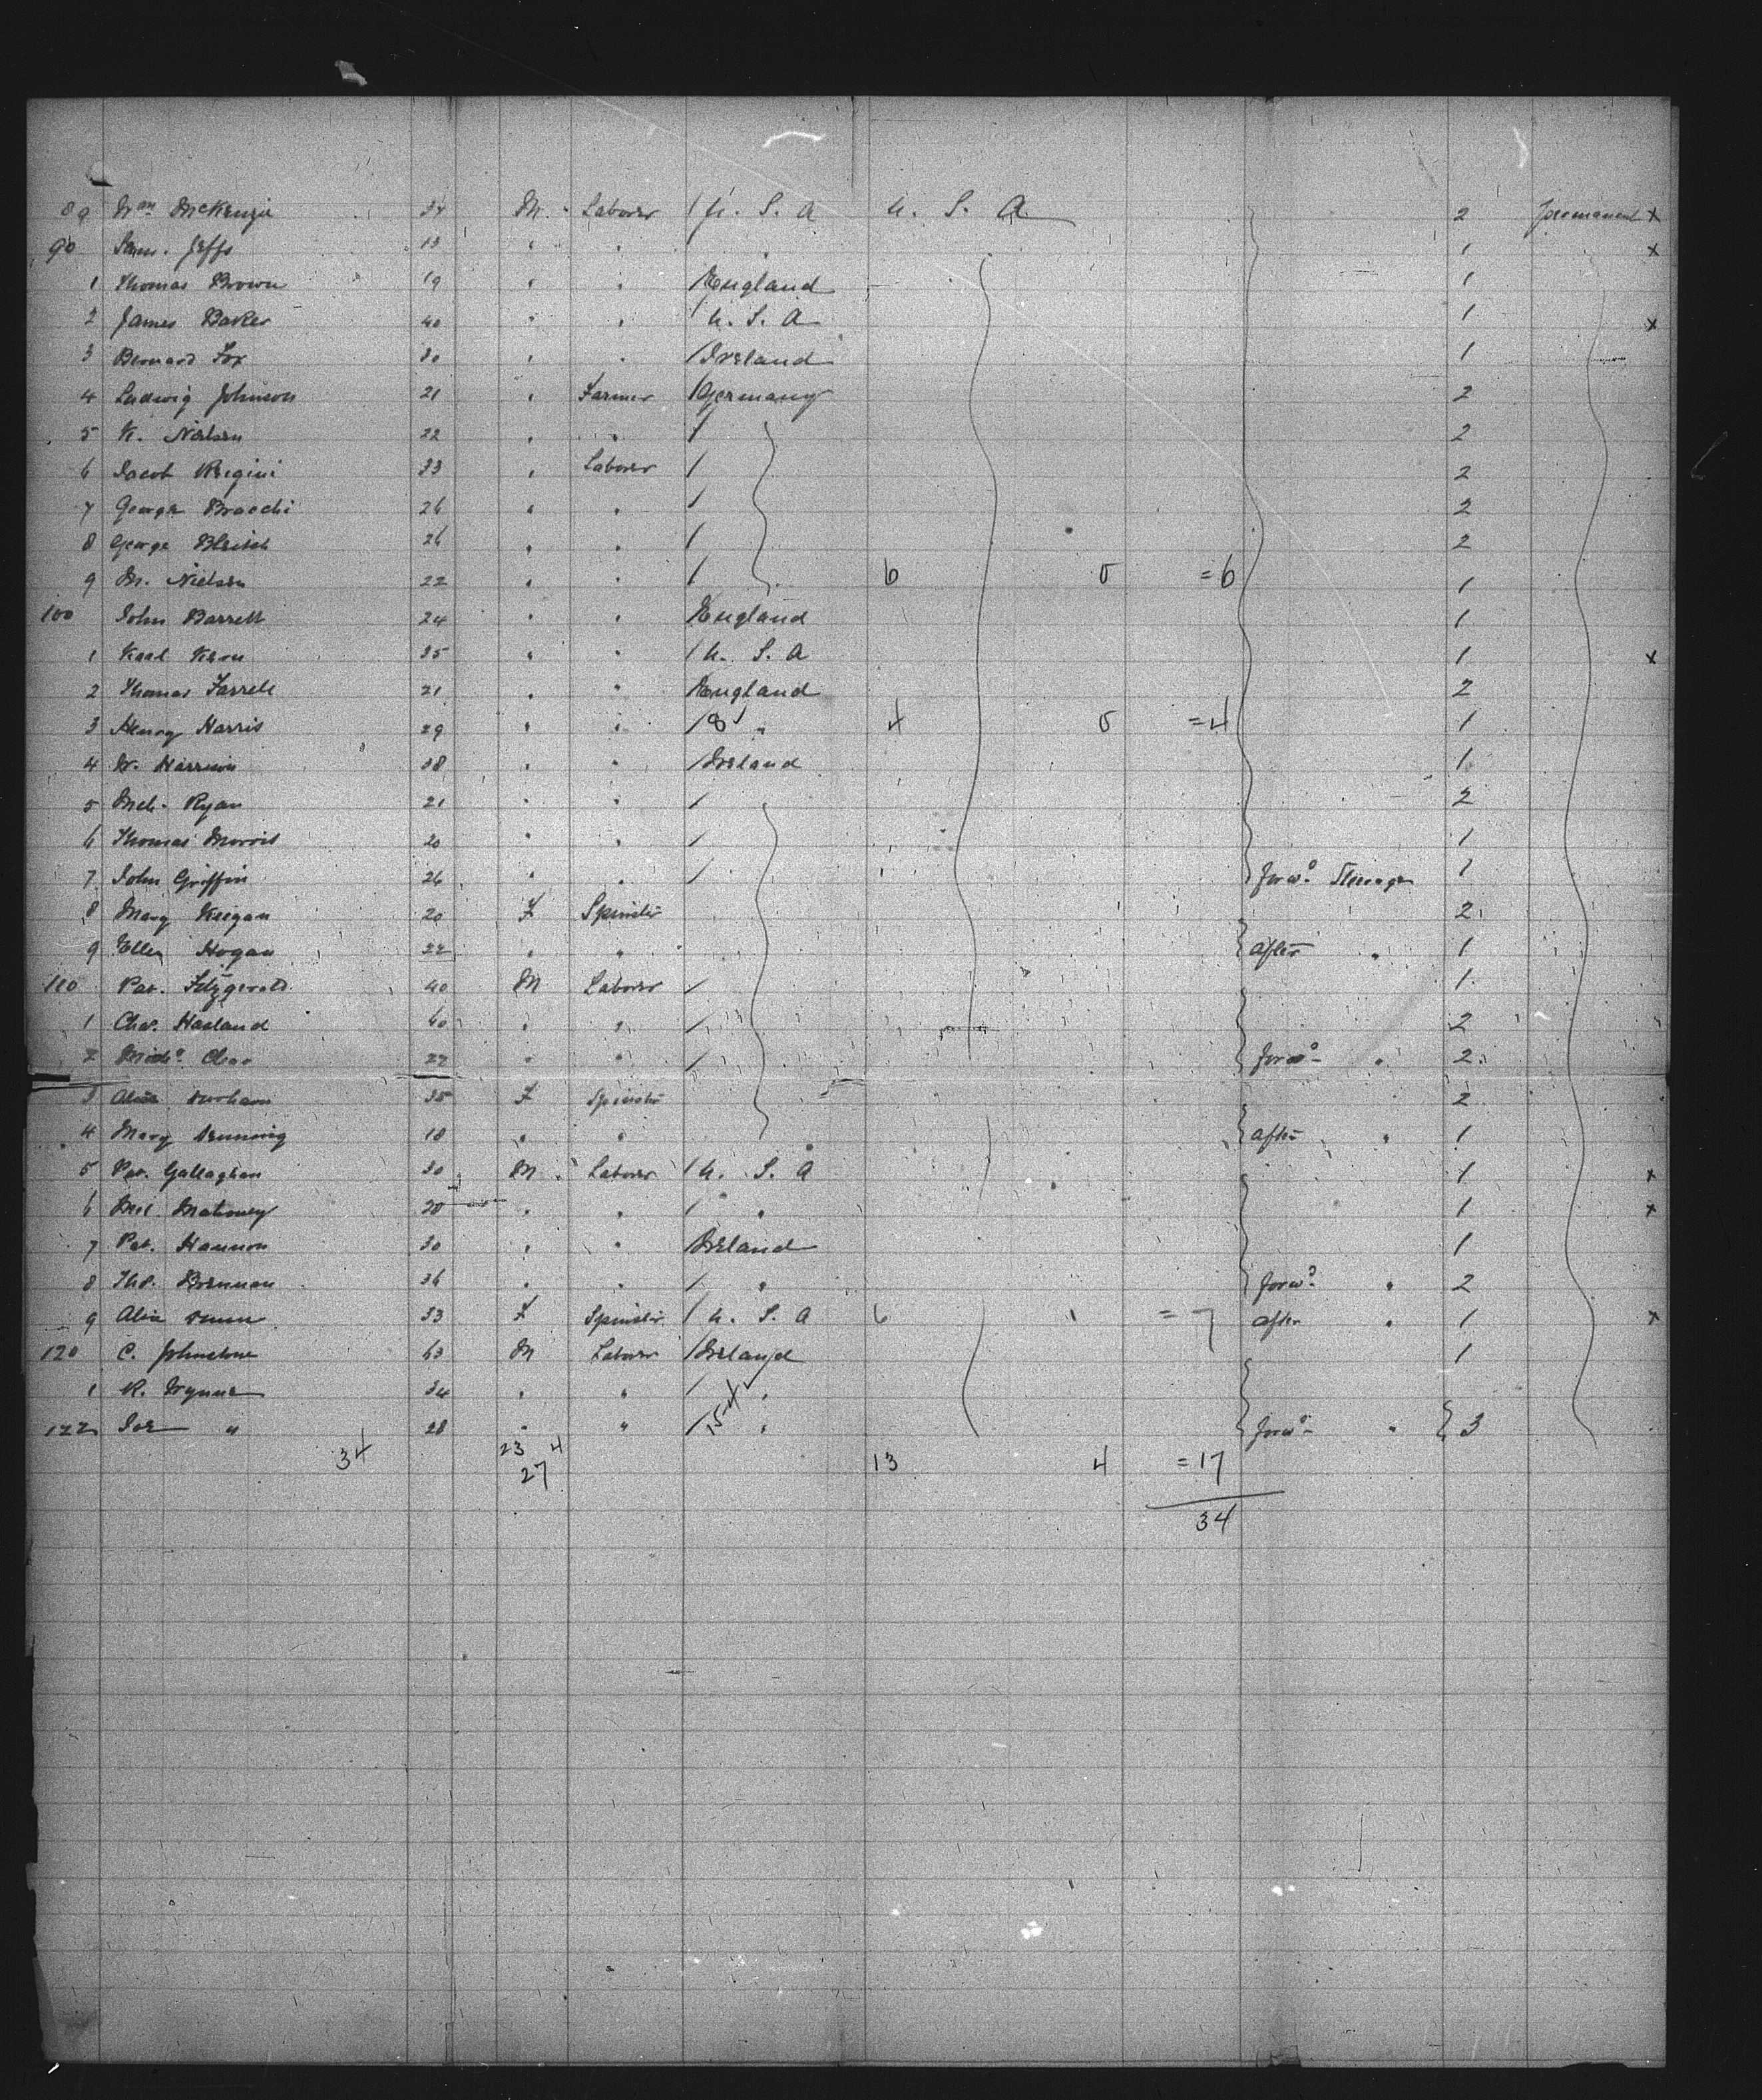 89 Wm McKenzie 34 M. Laborer / U. S. A U. S. A 2 permanent x
90 Sam. Jeffs 13 " " " 1 x
1 Thomas Brown 19 " " / England 1
2 James Baker 40 " " / U. S. A 1 x
3 Bernard Fox 30 " " / Ireland 1
4 Ludwig Johnson 21 " Farmer / Germany 2
5 K. Nielsen 22 " " / 2
6 Jacob Regini 33 " Laborer / 2
7 George Braechi 26 " " / 2
8 George Bleisch 26 " " / 2
9 M. Nielsen 22 " " / 6 0 =6 1
100 John Barrett 24 " " / England 1
1 Karl Kern 35 " " / U. S. A 1 x
2 Thomas Farrell 21 " " / England 2
3 Henry Harris 29 " " / 8 " 4 0 =4 1
4 W. Harrison 38 " " / Ireland 1
5 Mch. Ryan 21 " " / 2
6 Thomas Morris 20 " " / 1
7 John Griffin 26 " " / forwd Steerage 1
8 Mary Keegan 20 F Spinster 2
9 Ellen Hogan 22 " " after " 1
110 Pat. Fitzgerald 40 M Laborer / 1
1 Chas. Hasland 40 " " / 2
2 22 " " / forwd " 2
3 35 F Spinster 2
4 Mary 18 " " after " 1
5 Pat. Gallaghan 30 M. Laborer / U. S. A 1 x
6 Mahoney 20 " " / " 1 x
7 Pat. Hannon 30 " " / Ireland 1
8 Thos. Brennan 36 " " / " forwd " 2
9 33 F Spinster / U. S. A 6 1 = 7 after " 1 x
120 C. Johnstone 63 M Laborer / Ireland 1
1 R. Wynne 34 " " / "
122 Joe " 28 " " / 15 4 " forwd " 3
34 23 4 13 4 =17
27
34